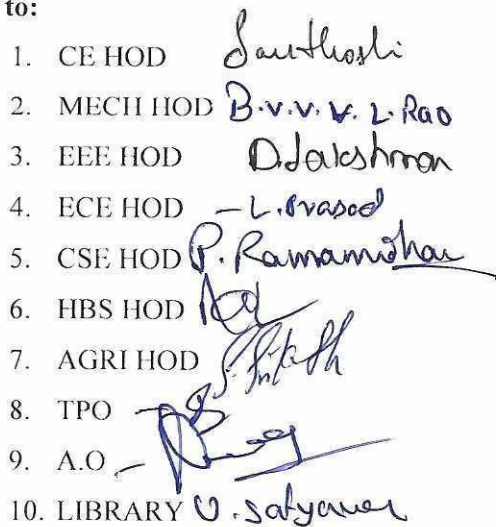 to:
1. CE HOD Santhoshi
2. MECH HOD B.V.V.V.L.Rao
3. EEE HOD D.Lakshman
4. ECE HOD - L.Prasad
5. CSE HOD P. Ramamohan
6. HBS HOD
7. AGRI HOD
8. TPO -
9. A.O -
10. LIBRARY